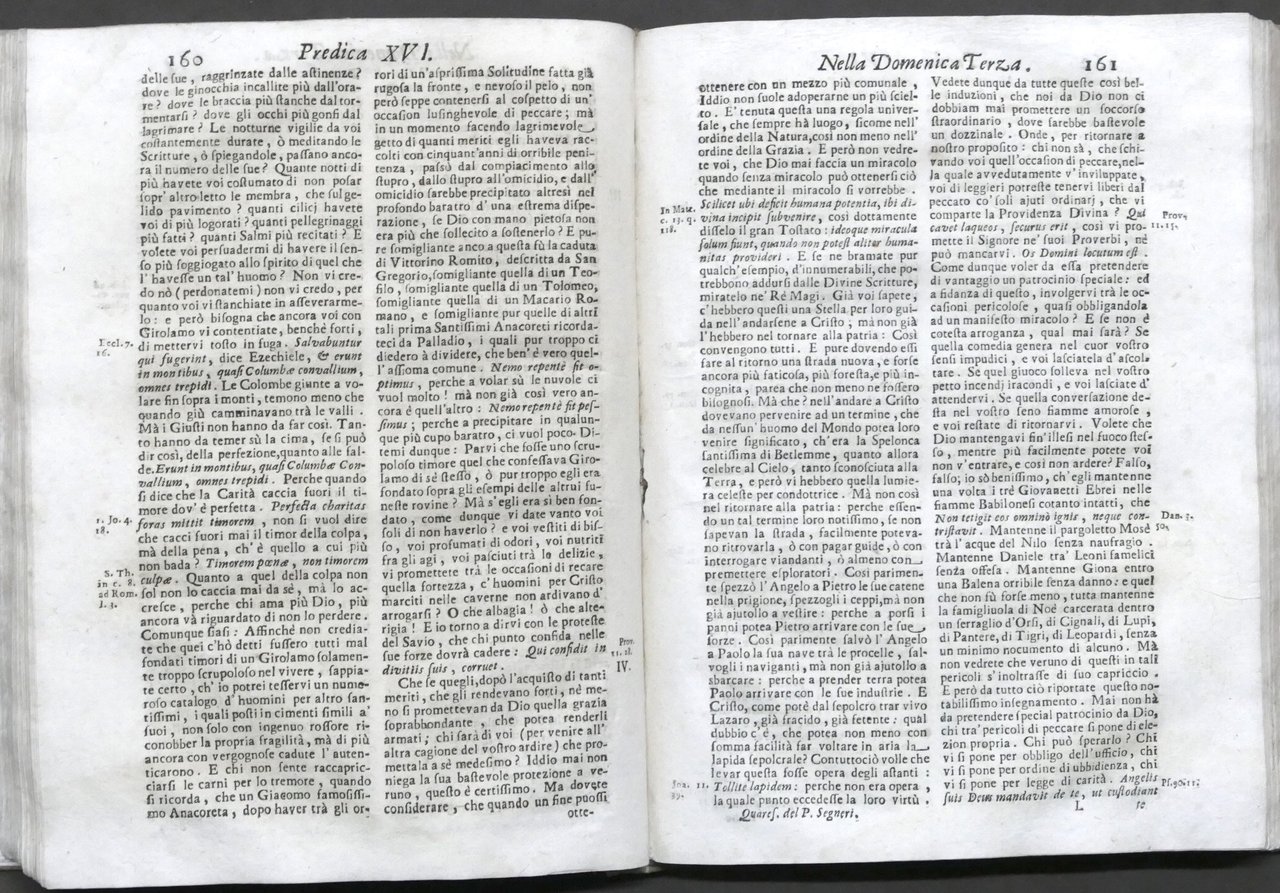 160 Predica XVI.
delle sue, raggrinzate dalle astinenze?
dove le ginocchia incallite più dall'ora-
re? dove le braccia più stanche dal tor-
mentarsi? dove gli occhi più gonfi dal
lagrimare? Le notturne vigilie da voi
costantemente durate, ò meditando le
Scritture, ò spiegandole, passano anco-
ra il numero delle sue? Quante notti di
più havete voi costumato di non posar
sopr'altro letto le membra, che sul ge-
lido pavimento? quanti cilicj havete
voi di più logorati? quanti pellegrinaggi
più fatti? quanti Salmi più recitati? E
volete voi persuadermi di havere il sen-
so più soggiogato allo spirito di quel che
l'havesse un tal'huomo? Non vi cre-
do nò (perdonatemi) non vi credo, per
quanto voi vi stanchiate in asseverarme-
lo: e però bisogna che ancora voi con
Girolamo vi contentiate, benchè forti,
di mettervi tosto in fuga. Salvabuntur
qui fugerint, dice Ezechiele, & erunt
in montibus, quasi Columbæ convallium,
omnes trepidi. Le Colombe giunte a vo-
lare fin sopra i monti, temono meno che
quando già camminavano trà le valli.
Mà i Giusti non hanno da far così. Tan-
to hanno da temer sù la cima, se si può
dir così, della perfezione, quanto alle fal-
de. Erunt in montibus, quasi Columbæ Con-
vallium, omnes trepidi. Perche quando
si dice che la Carità caccia fuori il ti-
more dov'è perfetta. Perfecta charitas
foras mittit timorem, non si vuol dire
che cacci fuori mai il timor della colpa,
mà della pena, ch'è quello a cui più
non bada? Timorem pœnæ, non timorem
culpæ. Quanto a quel della colpa non
sol non lo caccia mai da sè, ma lo ac-
cresce, perche chi ama più Dio, più
ancora và riguardato di non lo perdere.
Comunque siasi: Affinchè non credia-
te che quei c'hò detti fussero tutti mal
fondati timori di un Girolamo solamen-
te troppo scrupoloso nel vivere, sappia-
te certo, ch'io potrei tesservi un nume-
roso catalogo d'huomini per altro san-
tissimi, i quali posti in cimenti simili a'
suoi, non solo con ingenuo rossore ri-
conobber la propria fragilità, mà di più
ancora con vergognose cadute l'auten-
ticarono. E chi non sente raccapric-
ciarsi le carni per lo tremore, quando
si ricorda, che un Giacomo famosissi-
mo Anacoreta, dopo haver trà gli or-
Ezecl. 7.
16.
1. Jo. 4.
18.
S. Th.
in c. 8.
ad Rom.
l. 3.
rori di un'asprissima Solitudine fatta già
rugosa la fronte, e nevoso il pelo, non
però seppe contenersi al cospetto di un'
occasion lusinghevole di peccare; mà
in un momento facendo lagrimevole
getto di quanti meriti egli haveva rac-
colti con cinquant'anni di orribile peni-
tenza, passò dal compiacimento allo
stupro, dallo stupro all'omicidio, e dall'
omicidio sarebbe precipitato altresì nel
profondo baratro d'una estrema dispe-
razione, se Dio con mano pietosa non
era più che sollecito a sostenerlo? E pu-
re somigliante anco a questa fù la caduta
di Vittorino Romito, descritta da San
Gregorio, somigliante quella di un Teo-
filo, somigliante quella di un Tolomeo,
somigliante quella di un Macario Ro-
mano, e somigliante pur quelle di altri
tali prima Santissimi Anacoreti ricorda-
teci da Palladio, i quali pur troppo ci
diedero à dividere, che ben'è vero quel-
l'assioma comune. Nemo repentè fit o-
ptimus, perche a volar sù le nuvole ci
vuol molto! mà non già così vero an-
cora è quell'altro: Nemo repentè fit pes-
simus; perche a precipitare in qualun-
que più cupo baratro, ci vuol poco. Di-
temi dunque: Parvi che fosse uno scru-
poloso timore quel che confessava Giro-
lamo di sé stesso, ò pur troppo egli era
fondato sopra gli esempi delle altrui fu-
neste rovine? Mà s'egli era sì ben fon-
dato, come dunque vi date vanto voi
soli di non haverlo? e voi vestiti di bis-
so, voi profumati di odori, voi nutriti
fra gli agi, voi pasciuti trà le delizie,
vi promettete trà le occasioni di recare
quella fortezza, c'huomini per Cristo
marciti nelle caverne non ardivano d'
arrogarsi? O che albagìa! ò che alte-
rigia! E io torno a dirvi con le proteste
del Savio, che chi punto confida nelle
sue forze dovrà cadere: Qui confidit in
divitiis suis, corruet.
Che se quegli, dopò l'acquisto di tanti
meriti, che gli rendevano forti, nè me-
no si promettevan da Dio quella grazia
soprabbondante, che potea renderli
armati; chi sarà di voi (per venire all'
altra cagione del vostro ardire) che pro-
mettala a sè medesimo? Iddio mai non
niega la sua bastevole protezione a ve-
runo, questo è certissimo. Ma dovete
considerare, che quando un fine puossi
otte-
Prov.
11. 28.
IV.
Nella Domenica Terza. 161
ottenere con un mezzo più comunale,
Iddio non suole adoperarne un più sciel-
to. E' tenuta questa una regola univer-
sale, che sempre hà luogo, sicome nell'
ordine della Natura, così non meno nell'
ordine della Grazia. E però non vedre-
te voi, che Dio mai faccia un miracolo
quando senza miracolo può ottenersi ciò
che mediante il miracolo si vorrebbe.
Scilicet ubi deficit humana potentia, ibi di-
vina incipit subvenire, così dottamente
disselo il gran Tostato: ideoque miracula
solum fiunt, quando non potest aliter huma-
nitas provideri. E se ne bramate pur
qualch'esempio, d'innumerabili, che po-
trebbono addursi dalle Divine Scritture,
miratelo ne' Rè Magi. Già voi sapete,
c'hebbero questi una Stella per loro gui-
da nell'andarsene a Cristo; mà non già
l'hebbero nel tornare alla patria: Così
convengono tutti. E pure dovendo essi
fare al ritorno una strada nuova, e forse
ancora più faticosa, più foresta, e più in-
cognita, parea che non meno ne fossero
bisognosi. Mà che? nell'andare a Cristo
dovevano pervenire ad un termine, che
da nessun'huomo del Mondo potea loro
venire significato, ch'era la Spelonca
santissima di Betlemme, quanto allora
celebre al Cielo, tanto sconosciuta alla
Terra, e però vi hebbero quella lumie-
ra celeste per condottrice. Mà non così
nel ritornare alla patria: perche essen-
do un tal termine loro notissimo, se non
sapevan la strada, facilmente poteva-
no ritrovarla, ò con pagar guide, ò con
interrogare viandanti, ò almeno con
premettere esploratori. Così parimen-
te spezzò l'Angelo a Pietro le sue catene
nella prigione, spezzogli i ceppi, mà non
già ajutollo a vestire: perche a porsi i
panni potea Pietro arrivare con le sue
forze. Così parimente salvò l'Angelo
a Paolo la sua nave trà le procelle, sal-
vogli i naviganti, mà non già ajutollo a
sbarcare: perche a prender terra potea
Paolo arrivare con le sue industrie. E
Cristo, come potè dal sepolcro trar vivo
Lazaro, già fracido, già fetente: qual
dubbio c'è, che potea non meno con
somma facilità far voltare in aria la
lapida sepolcrale? Contuttociò volle che
levar questa fosse opera degli astanti:
Tollite lapidem: perche non era opera,
la quale punto eccedesse la loro virtù.
Quares. del P. Segneri.
In Matt.
c. 13. q.
118.
Joa. 11.
39.
Vedete dunque da tutte queste così bel-
le induzioni, che noi da Dio non ci
dobbiam mai promettere un soccorso
straordinario, dove sarebbe bastevole
un dozzinale. Onde, per ritornare a
nostro proposito: chi non sà, che schi-
vando voi quell'occasion di peccare, nel-
la quale avvedutamente v'inviluppate,
voi di leggieri potreste tenervi liberi dal
peccato co' soli ajuti ordinarj, che vi
comparte la Providenza Divina? Qui
cavet laqueos, securus erit, così vi pro-
mette il Signore ne' suoi Proverbi, nè
può mancarvi. Os Domini locutum est.
Come dunque voler da essa pretendere
di vantaggio un patrocinio speciale: ed
a fidanza di questo, involgervi trà le oc-
casioni pericolose, quasi obbligandola
ad un manifesto miracolo? E se non è
cotesta arroganza, qual mai sarà? Se
quella comedia genera nel cuor vostro
sensi impudici, e voi lasciatela d'ascol-
tare. Se quel giuoco solleva nel vostro
petto incendj iracondi, e voi lasciate d'
attendervi. Se quella conversazione de-
sta nel vostro seno fiamme amorose,
e voi restate di ritornarvi. Volete che
Dio mantengavi fin'illesi nel fuoco stes-
so, mentre più facilmente potete voi
non v'entrare, e così non ardere? Falso,
falso; io sò benissimo, ch'egli mantenne
una volta i trè Giovanetti Ebrei nelle
fiamme Babilonesi cotanto intatti, che
Non tetigit eos omninò ignis, neque con-
tristavit. Mantenne il pargoletto Mosè
trà l'acque del Nilo senza naufragio.
Mantenne Daniele tra' Leoni famelici
senza offesa. Mantenne Giona entro
una Balena orribile senza danno: e quel
che non fù forse meno, tutta mantenne
la famigliuola di Noè carcerata dentro
un serraglio d'Orsi, di Cignali, di Lupi,
di Pantere, di Tigri, di Leopardi, senza
un minimo nocumento di alcuno. Mà
non vedrete che veruno di questi in tali
pericoli s'inoltrasse di suo capriccio.
E però da tutto ciò riportate questo no-
tabilissimo insegnamento. Mai non hà
da pretendere special patrocinio da Dio,
chi tra' pericoli di peccare si pone di ele-
zion propria. Chi può sperarlo? Chi
vi si pone per obbligo dell'ufficio, chi
vi si pone per ordine di ubbidienza, chi
vi si pone per legge di carità. Angelis
suis Deus mandavit de te, ut custodiant
L te
Prov.
11. 15.
Dan. 3.
50.
Ps. 90. 11.